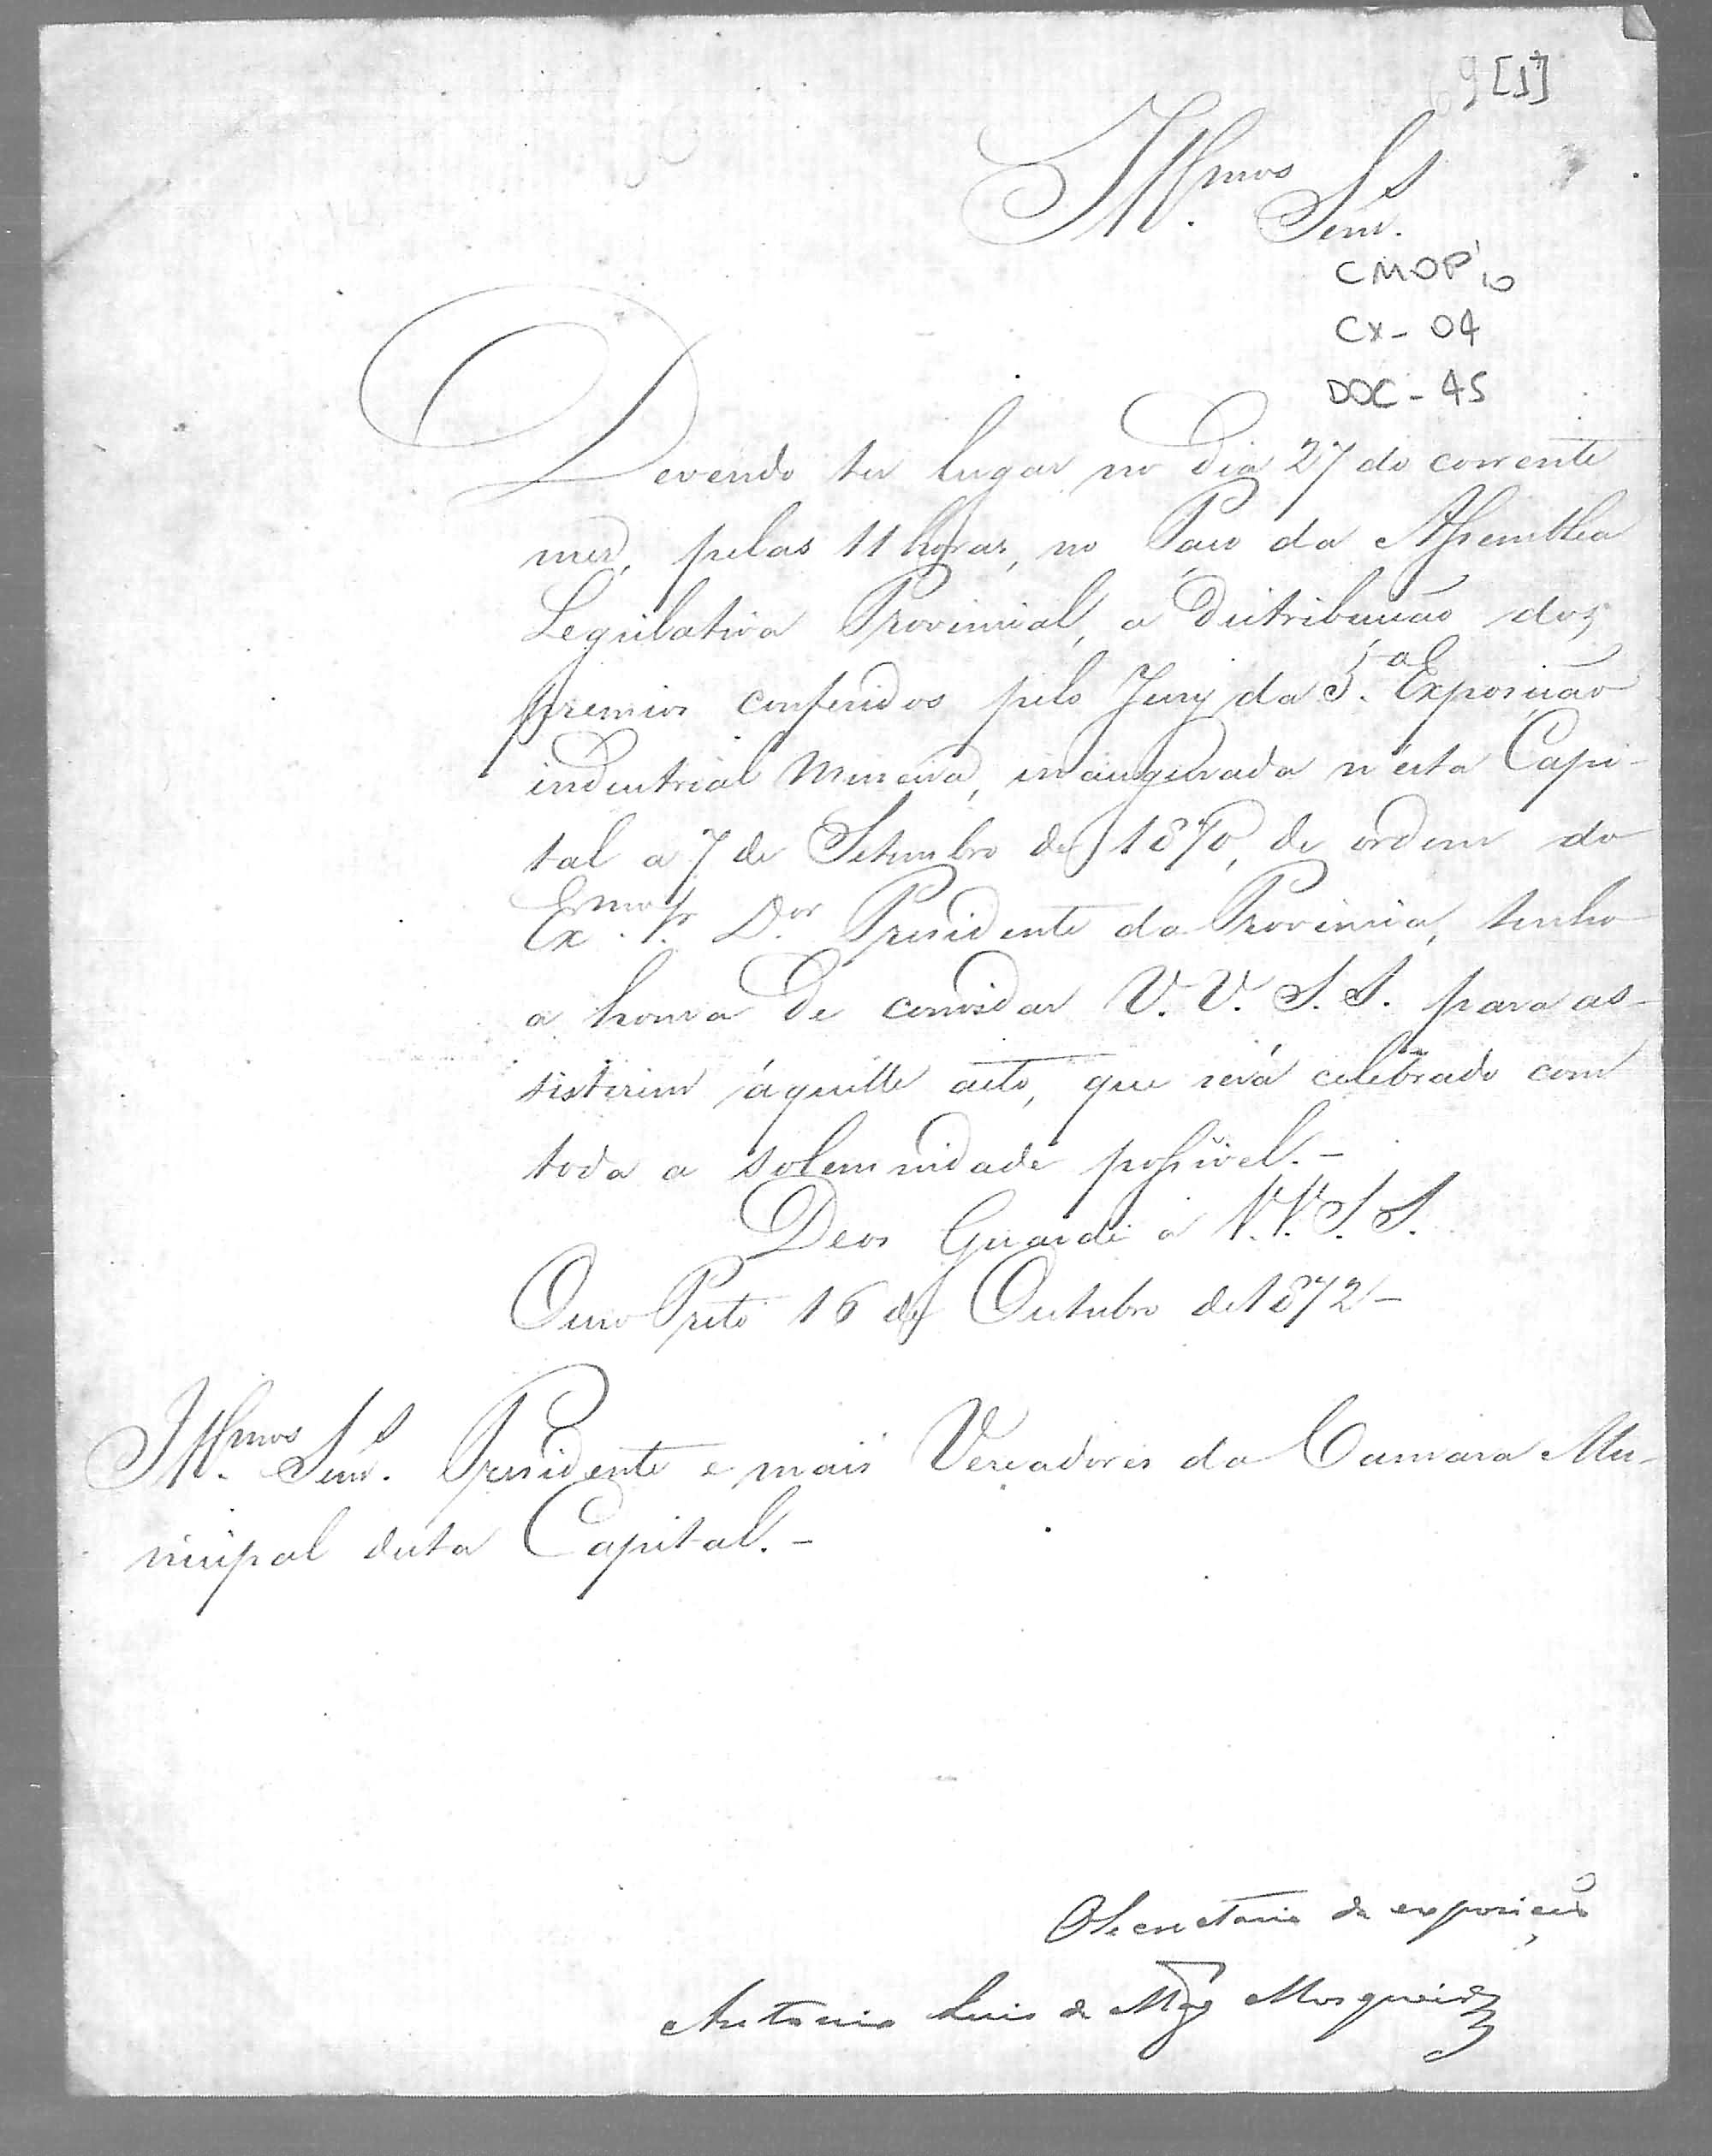 69 [1]
Ill.mos Senr.s
CMOP
CX - 04
DOC - 45
Devendo ter lugar no dia 27 do corrente
mez, pelas 11 horas, no Paço da Assemblea
Legislativa Provincial, a distribuição dos
premios conferidos pelo Jury da 5.a Exposição
industrial Mineira, inaugurada n'esta Capi-
tal a 7 de Setembro de 1870, de ordem do
Ex.mo Sr. D.or Presidente da Provincia, tenho
a honra de convidar V.V. S.S. para as-
sistirem áquelle acto, que será celebrado com
toda a solemnidade possivel. -
Deos Guarde a V.V. S.S.
Ouro Preto 16 de Outubro de 1872 -
Ill.mos Senr.s Presidente e mais Vereadores da Camara Mu-
nicipal desta Capital. -
O Secretario da exposição
Antonio Luis de Mag.es Mosqueira